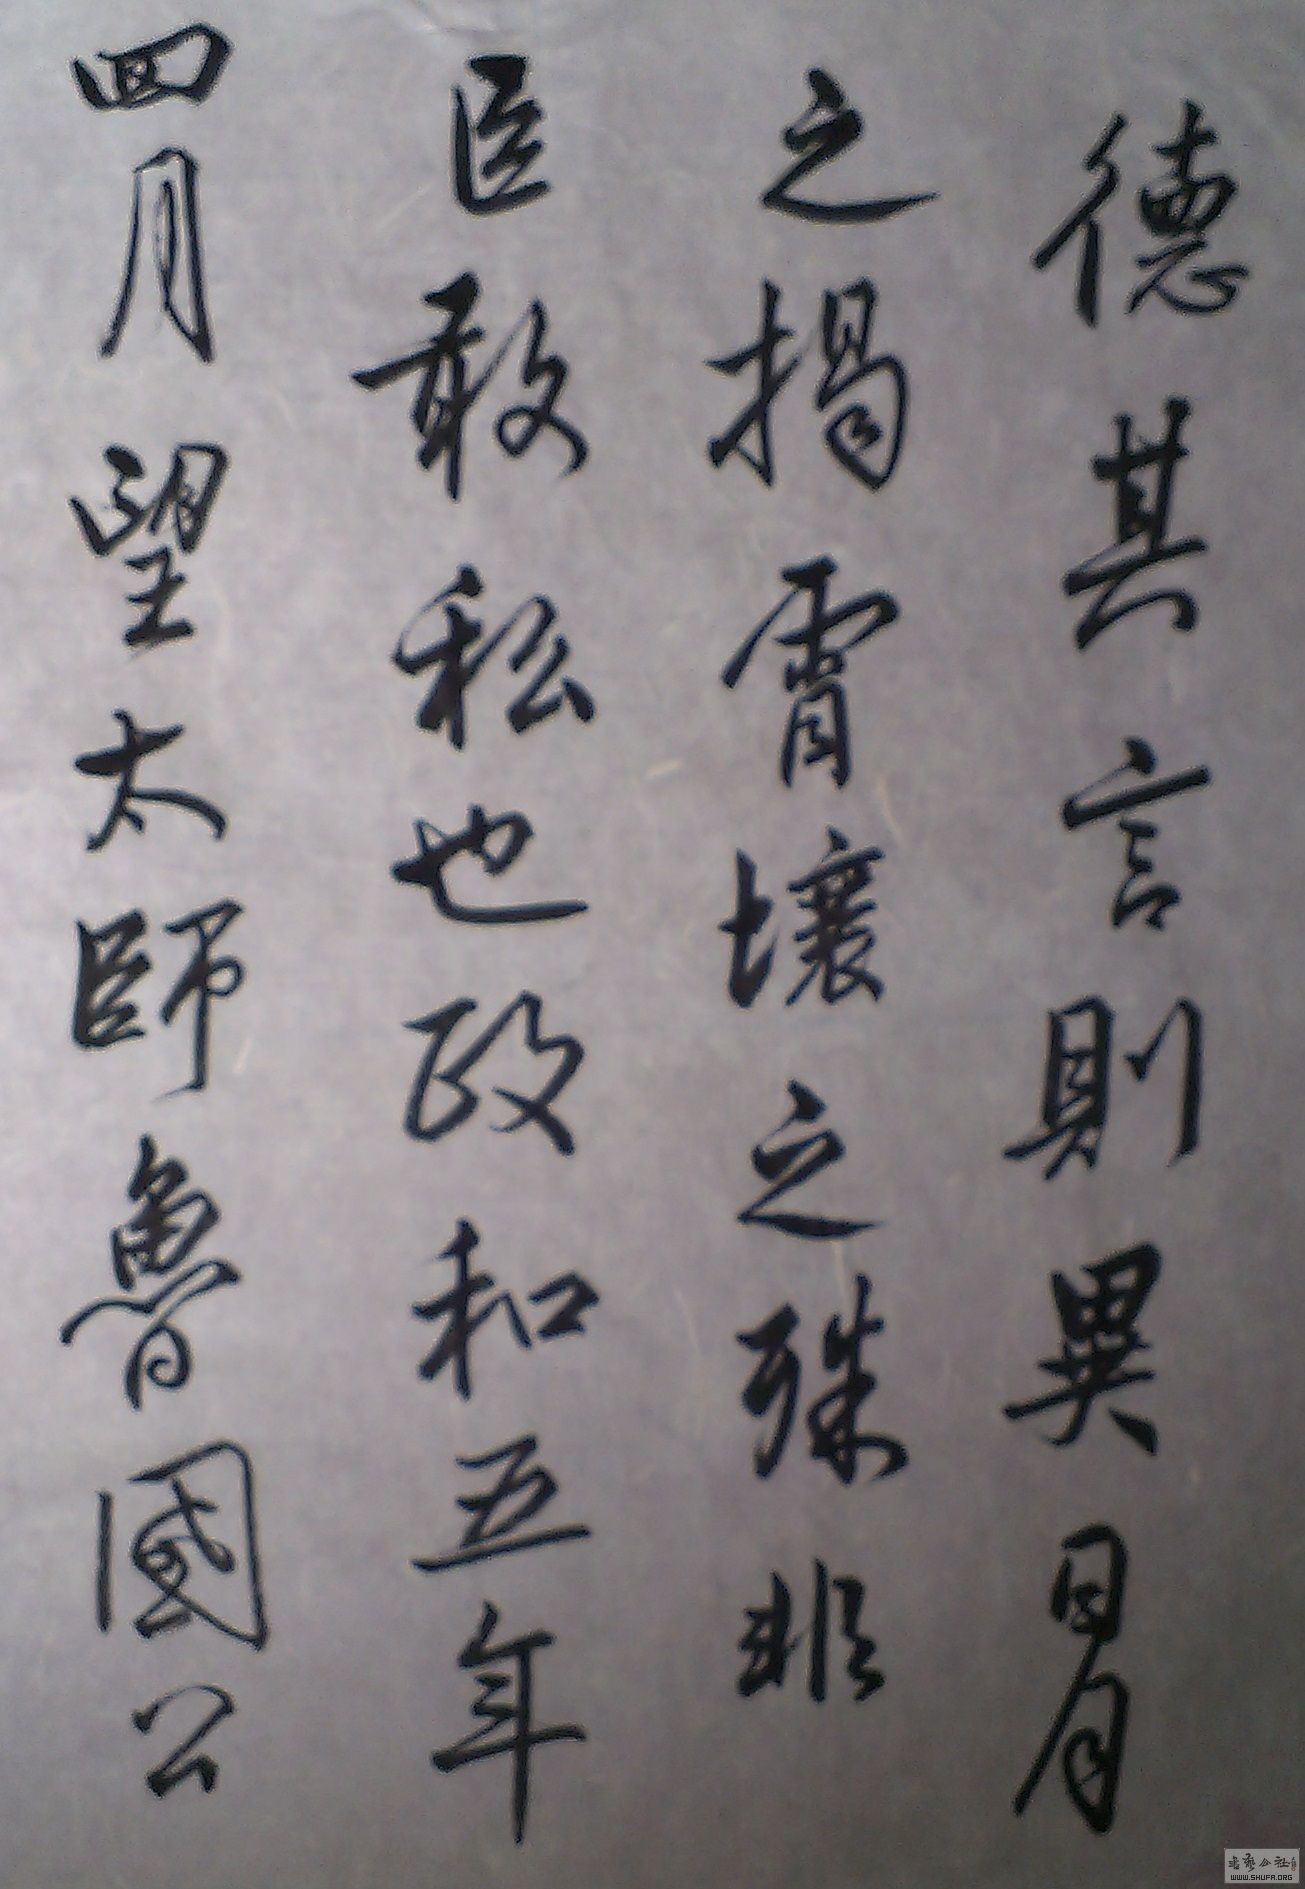 德其言則異日月
之揭霄壤之殊非
臣敢私也政和五年
四月望太師魯國公
書艺公社
WWW.SHUFA.ORG